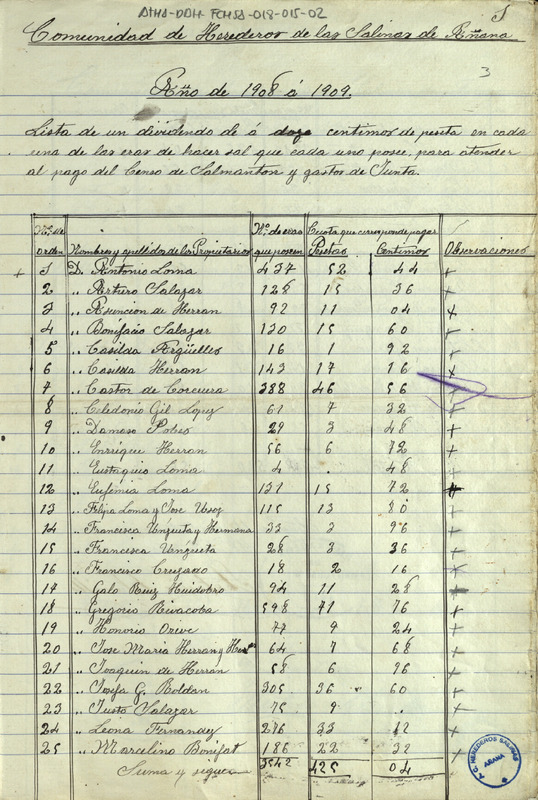 ATHA-DDH-FCHSA-018-015-02
1
Comunidad de Herederos de las Salinas de Añana
3
Año de 1908 á 1909.
Lista de un dividendo de á doze centimos de peseta en cada
una de las eras de hacer sal que cada uno posee, para atender
al pago del Censo de Salmanton y gastos de Junta.
Nº. de orden Nombres y apellidos de los Propietarios Nº. de eras que poseen Cuota que corresponde pagar Pesetas Centimos Observaciones
+ 1 D. Antonio Loma 437 52 44 +
2 " Arturo Salazar 128 15 36 +
3 " Asuncion de Herran 92 11 04 +
4 " Bonifacio Salazar 130 15 60
5 " Casilda Argüelles 16 1 92
6 " Casilda Herran 143 17 16 +
7 " Castor de Corcuera 388 46 56
8 " Celedonio Gil Lopez 61 7 32 +
9 " Damaso Pobes 29 3 48 +
10 " Enrrique Herran 56 6 72 +
11 " Eustaquio Loma 4 . 48 +
12 " Eufemia Loma 131 15 72 +
13 " Felipa Loma y Jose Usoz 115 13 80 +
14 " Francisca Ungueta y Hermana 33 3 96 +
15 " Francisca Ungueta 28 3 36 +
16 " Francisco 18 2 16 +
17 " Galo Ruiz Huidobro 94 11 28
18 " Gregorio Rivacoba 598 71 76 +
19 " Honorio Orive 77 9 24 +
20 " Jose Maria Herran y Her.os 64 7 68 +
21 " Joaquin de Herran 58 6 96 +
22 " Josefa G. Roldan 305 36 60 +
23 " Justo Salazar 75 9 . +
24 " Leona Fernandez 276 33 12 +
25 " Marcelino Bonifat 186 22 32 +
Suma y sigue 3542 425 04
A.C. HEREDEROS SALINAS
AÑANA